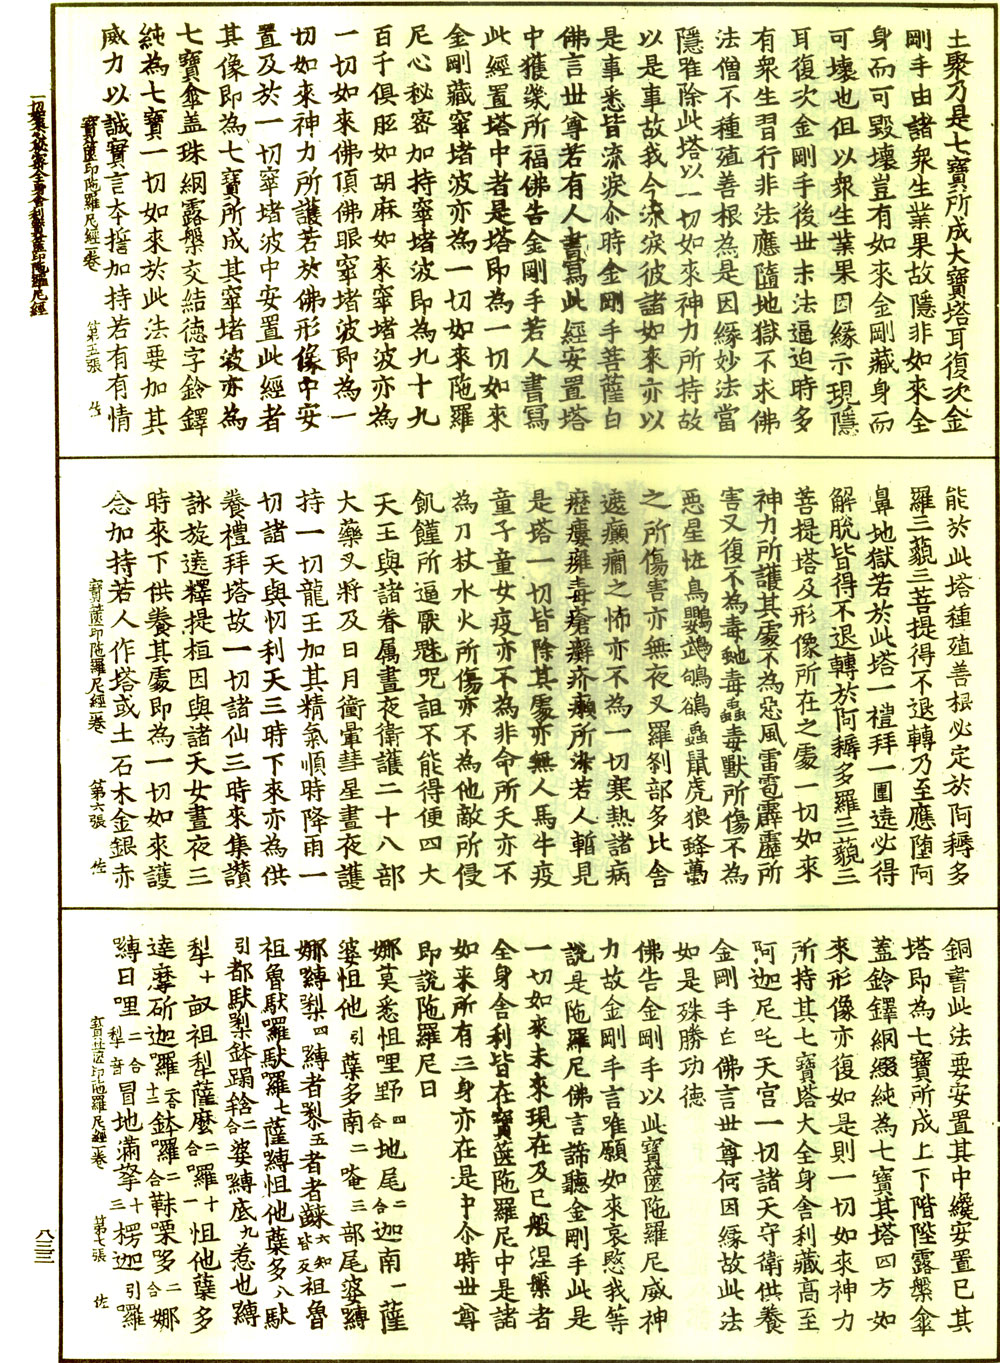 土聚乃是七寶所成大寶塔耳復次金
剛手由諸衆生業果故隱非如來全
身而可毀壞豈有如來金剛藏身而
可壞也但以衆生業果因緣示現隱
耳復次金剛手後世末法逼迫時多
有衆生習行非法應墮地獄不求佛
法僧不種殖善根為是因緣妙法當
隱唯除此塔以一切如來神力所持故
以是事故我今流淚彼諸如來亦以
是事悉皆流淚尒時金剛手菩薩白
佛言世尊若有人書寫此經安置塔
中獲幾所福佛告金剛手若人書寫
此經置塔中者是塔即為一切如來
金剛藏窣堵波亦為一切如來陁羅
尼心秘密加持窣堵波即為九十九
百千俱胝如胡麻如來窣堵波亦為
一切如來佛頂佛眼窣堵波即為一
切如來神力所護若於佛形像中安
置及於一切窣堵波中安置此經者
其像即為七寶所成其窣堵波亦為
七寶傘盖珠網露槃交結德字鈴鐸
純為七寶一切如來於此法要加其
威力以誠實言本誓加持若有有情
寶篋印陁羅尼經一卷 第五張 佐
一切如來心秘密全身舍利寶篋印陁羅尼經
能於此塔種殖善根必定於阿耨多
羅三藐三菩提得不退轉乃至應墮阿
鼻地獄若於此塔一禮拜一圍遶必得
解脫皆得不退轉於阿耨多羅三藐三
菩提塔及形像所在之處一切如來
神力所護其處不為惡風雷雹霹靂所
害又復不為毒虵毒蟲毒獸所傷不為
惡星恠鳥鸚鵡鴝鵒蟲鼠虎狼蜂蠆
之所傷害亦無夜叉羅剎部多比舍
遮癲癇之怖亦不為一切寒熱諸病
癧瘻癰毒瘡癬疥癩所染若人暫見
是塔一切皆除其處亦無人馬牛疫
童子童女疫亦不為非命所夭亦不
為刀杖水火所傷亦不為他敵所侵
飢饉所逼厭魅呪詛不能得便四大
天王與諸眷属晝夜衛護二十八部
大藥叉將及日月衝暈彗星晝夜護
持一切龍王加其精氣順時降雨一
切諸天與忉利天三時下來亦為供
養禮拜塔故一切諸仙三時來集讚
詠旋遶釋提桓因與諸天女晝夜三
時來下供養其處即為一切如來護
念加持若人作塔或土石木金銀赤
寶篋印陁羅尼經一卷 第六張 佐
銅書此法要安置其中纔安置已其
塔即為七寶所成上下階陛露槃傘
蓋鈴鐸網綴純為七寶其塔四方如
來形像亦復如是則一切如來神力
所持其七寶塔大全身舍利藏高至
阿迦尼吒天宮一切諸天守衛供養
金剛手白佛言世尊何因緣故此法
如是殊勝功德
佛告金剛手以此寶篋陁羅尼威神
力故金剛手言唯願如來哀愍我等
說是陁羅尼佛言諦聽金剛手此是
一切如來未來現在及已般涅槃者
全身舍利皆在寶篋陁羅尼中是諸
如來所有三身亦在是中尒時世尊
即說陁羅尼曰
娜莫悉怛哩野四合地尾二合迦南一薩
婆怛他引蘖多南二唵三部尾婆縛
娜縛梨四縛者梨五者者𪘨六知皆反祖魯
祖魯馱羅馱羅七薩縛怛他蘖多八馱
引都馱梨鉢蹋𤚥二合婆縛底九惹也縛
犁十畝祖犁薩麼二合羅十一怛他蘖多
達摩斫迦羅二合十二鉢羅二合靺𠻴多二合娜
嚩日哩二合犁音冐地滿拏十三楞迦引囉
寶篋印陁羅尼經一卷 第七張 佐
八三三